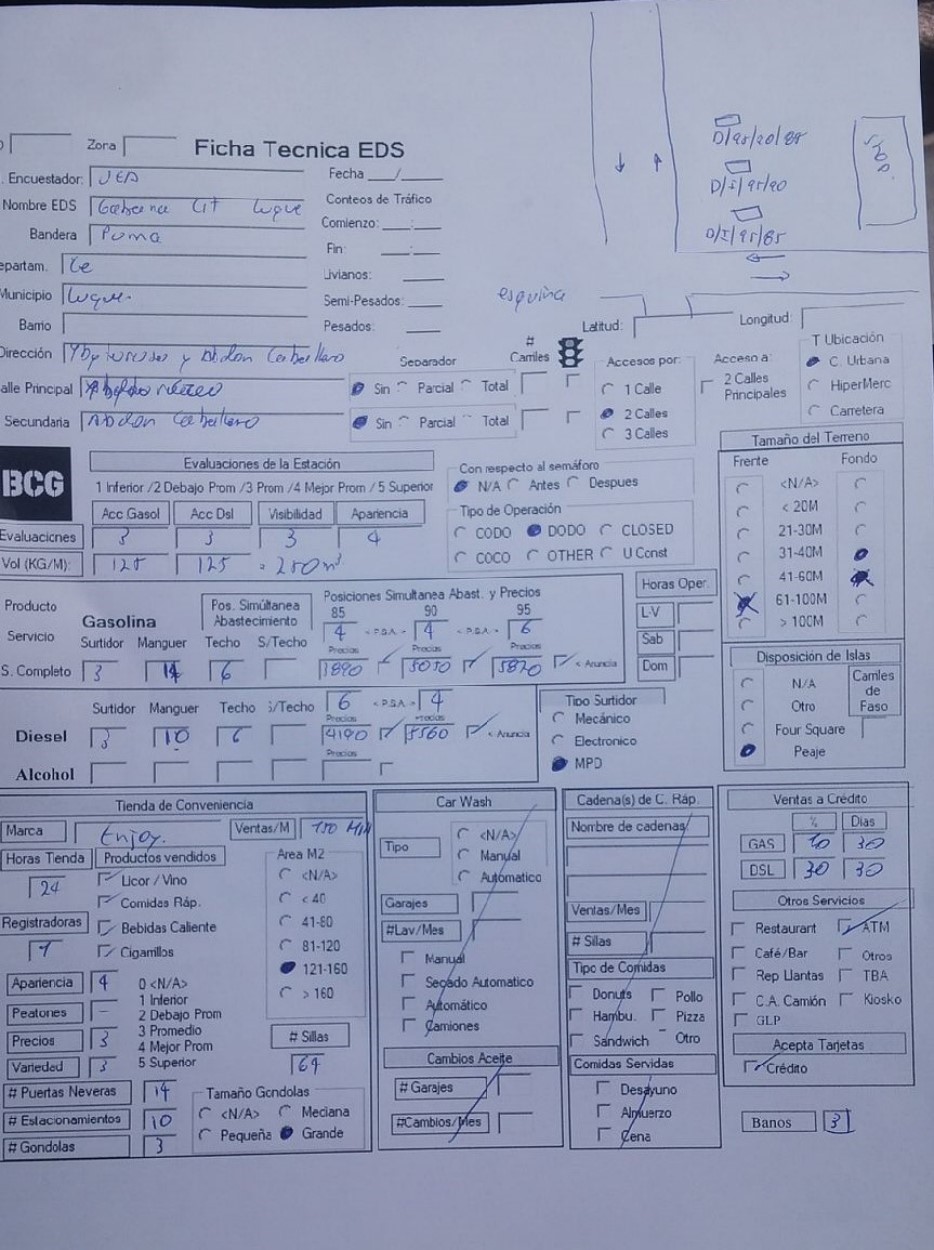 Zona
Ficha Tecnica EDS
Encuestador: JED
Fecha ___/___
Nombre EDS
Conteos de Tráfico
Bandera Puma
Comienzo: __:__
Fin: __:__
Livianos:
Municipio Luque
Semi-Pesados:
esquina
Barrio
Pesados:
Latitud:
Longitud:
D/I/95/90
D/I/95/85
Dirección
# Carriles
Accesos por:
Acceso a:
T Ubicación
Separador
1 Calle
2 Calles Principales
C. Urbana
alle Principal
Sin Parcial Total
2 Calles
HiperMerc
Secundaria
Sin Parcial Total
3 Calles
Carretera
BCG
Evaluaciones de la Estación
1 Inferior /2 Debajo Prom /3 Prom /4 Mejor Prom /5 Superior
Acc Gasol Acc Dsl Visibilidad Apariencia
Evaluaciones 3 3 3 4
Vol (KG/M): 125 125 = 250 m³
Con respecto al semáforo
N/A Antes Despues
Tipo de Operación
CODO DODO CLOSED
COCO OTHER U Const
Tamaño del Terreno
Frente Fondo
<N/A>
< 20M
21-30M
31-40M
41-60M
61-100M
> 100M
Producto
Servicio
Gasolina
Pos. Simúltanea Abastecimiento
Posiciones Simultanea Abast. y Precios
85 90 95
4 < P.S.A. > 4 < P.S.A. > 6
Surtidor Manguer Techo S/Techo
Precios Precios Precios
S. Completo 3 14 6
< Anuncia
Horas Oper.
L-V
Sab
Dom
Surtidor Manguer Techo S/Techo
6 < P.S.A. > 4
Precios Precios
Diesel 3 10 6 4190
< Anuncia
Precios
Alcohol
Tipo Surtidor
Mecánico
Electronico
MPD
Disposición de Islas
N/A
Otro
Four Square
Peaje
Carriles de Paso
Tienda de Conveniencia
Marca Enjoy.
Ventas/M
Horas Tienda 24
Productos vendidos
Licor / Vino
Comidas Ráp.
Bebidas Caliente
Cigarrillos
Registradoras 1
Area M2
<N/A>
< 40
41-80
81-120
121-160
> 160
Apariencia 4
Peatones -
Precios 3
Variedad 3
0 <N/A>
1 Inferior
2 Debajo Prom
3 Promedio
4 Mejor Prom
5 Superior
# Sillas
64
# Puertas Neveras 14
# Estacionamientos 10
# Gondolas 3
Tamaño Gondolas
<N/A> Meciana
Pequeña Grande
Car Wash
Tipo
<N/A>
Manual
Automatico
Garajes
#Lav/Mes
Manual
Secado Automatico
Automático
Camiones
Cambios Aceite
# Garajes
#Cambios/Mes
Cadena(s) de C. Ráp.
Nombre de cadenas
Ventas/Mes
# Sillas
Tipc de Comidas
Donuts Pollo
Hambu. Pizza
Sandwich Otro
Comidas Servidas
Desayuno
Almuerzo
Cena
Ventas a Crédito
% Dias
GAS 30
DSL 30 30
Otros Servicios
Restaurant ATM
Café/Bar Otros
Rep Llantas TBA
C.A. Camión Kiosko
GLP
Acepta Tarjetas
Crédito
Banos 3